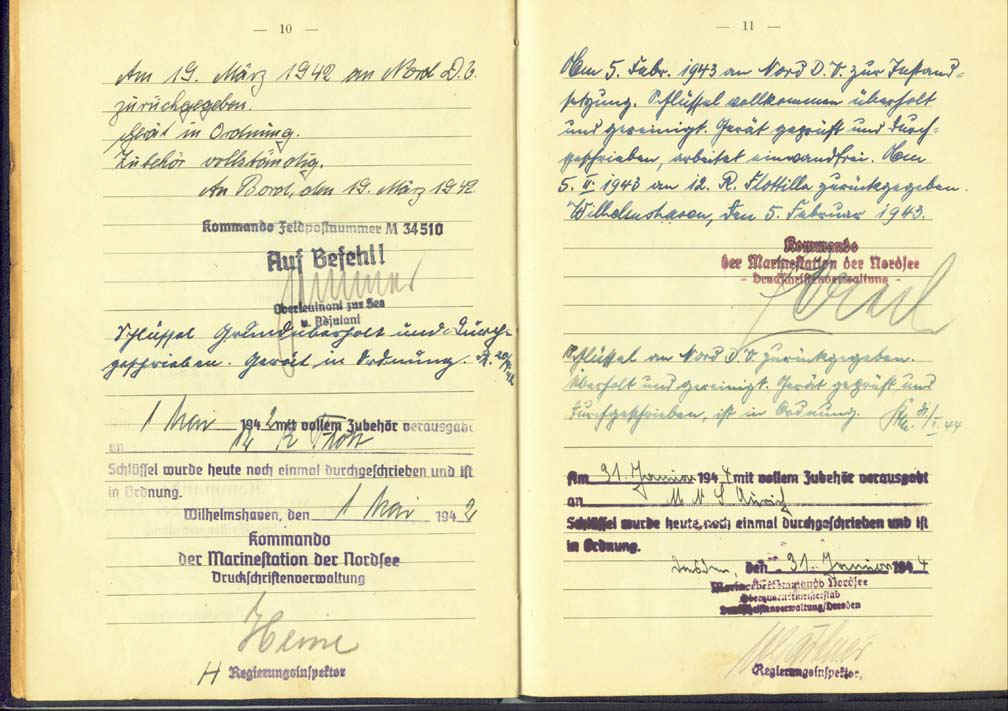 — 10 —
Am 19. März 1942 an Nord D.V.
zurückgegeben.
Gerät in Ordnung.
Zubehör vollständig.
An Bord, den 19. März 1942
Kommando Feldpostnummer M 34510
Auf Befehl!
Oberleutnant zur See
u. Adjutant
Schlüssel Grundüberholt und durch-
geschrieben. Gerät in Ordnung.
1 Mai 1942 mit vollem Zubehör verausgabt
an 12 R Flott
Schlüssel wurde heute noch einmal durchgeschrieben und ist
in Ordnung.
Wilhelmshaven, den 1 Mai 1942
Kommando
der Marinestation der Nordsee
Druckschriftenverwaltung
Heine
H Regierungsinspektor
— 11 —
Am 5. Febr. 1943 an Nord D.V. zur Instand-
setzung. Schlüssel vollkommen überholt
und gereinigt. Gerät geprüft und durch-
geschrieben, arbeitet einwandfrei. Am
5. II. 1943 an 12. R. Flottille zurückgegeben.
Wilhelmshaven, den 5. Februar 1943.
Kommando
der Marinestation der Nordsee
- Druckschriftenverwaltung -
Schlüssel an Nord D.V. zurückgegeben.
Überholt und gereinigt. Gerät geprüft und
durchgeschrieben, ist in Ordnung. 31/I. 44
Am 31. Januar 1944 mit vollem Zubehör verausgabt
an M N S Aurich
Schlüssel wurde heute noch einmal durchgeschrieben und ist
in Ordnung.
Dresden, den 31. Januar 1944
Marineoberkommando Nordsee
Oberquartiermeisterstab
Druckschriftenverwaltung/Dresden
Regierungsinspektor